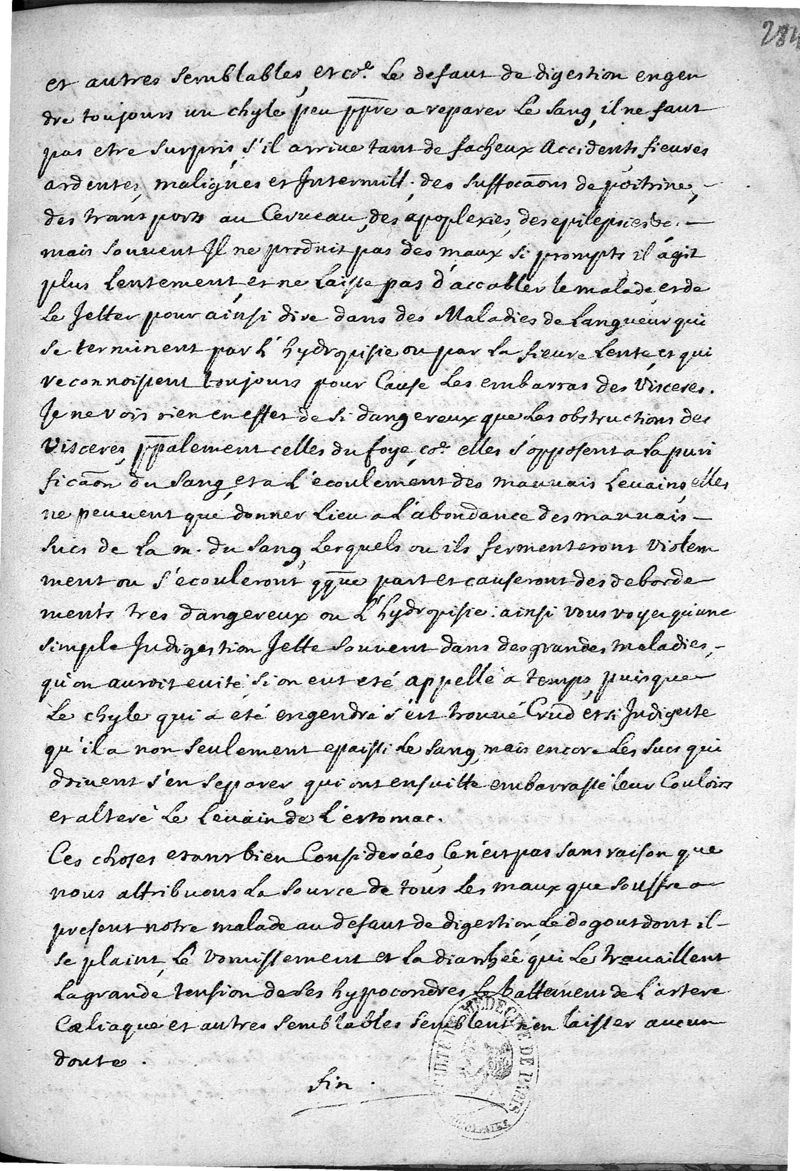 284
et autres semblables, et co.e Le defaut de digestion engen
dre toujours un chyle peu ppre a reparer Le sang, il ne faut
pas etre surpris, s'il arrive tant de facheux Accidents fieures
ardentes, malignes et Intermitt. des suffocaons de poitrine,
des transports au Cerveau, des apoplexies, des epilepsies &c.
mais souvent Il ne produit pas des maux si prompts il agit
plus Lentement, et ne Laisse pas d'accabler le malade, et de
Le Jetter pour ainsi dire dans des Maladies de Langueur qui
se terminent par L'hydropisie ou par La fieure Lente, et qui
reconnoissent toujours pour Cause Les embarras des Visceres.
Je ne vois rien en effet de si dangereux que Les obstructions des
Visceres, ppalement celles du foye, co.e elles s'opposent a La puri
ficaon du Sang, et a L'écoulement des mauvais Levains, elles
ne peuvent que donner Lieu a L'abondance des mauvais
sucs de La m. du sang, Lesquels ou ils fermenteront violem
ment ou s'écouleront qque part et causeront des deborde
ments tres dangereux ou L'hydropisie: ainsi vous voyez qu'une
simple Indigestion Jette souvent dans des grandes maladies,
qu'on auroit evité si on eut été appellé a temps, puisque
Le chyle qui a été engendré s'est trouvé Crud et si Indigeste
qu'il a non seulement epaissi Le sang, mais encore Les sucs qui
doivent s'en separer qui ont ensuitte embarrassé leur Couloirs
et alteré Le Levain de L'estomac.
Ces choses etant bien Considerées, Ce n'est pas sans raison que
nous attribuons La source de tous Les maux que souffre a
present notre malade au defaut de digestion, Le degout dont il
se plaint, Le vomissement et La diarrhée qui Le travaillent
La grande tension de ses hypocondres Le battement de L'artere
Cœliaque et autres semblables semblent n'en laisser aucun
doute.
fin.
FACULTÉ DE MÉDECINE DE PARIS